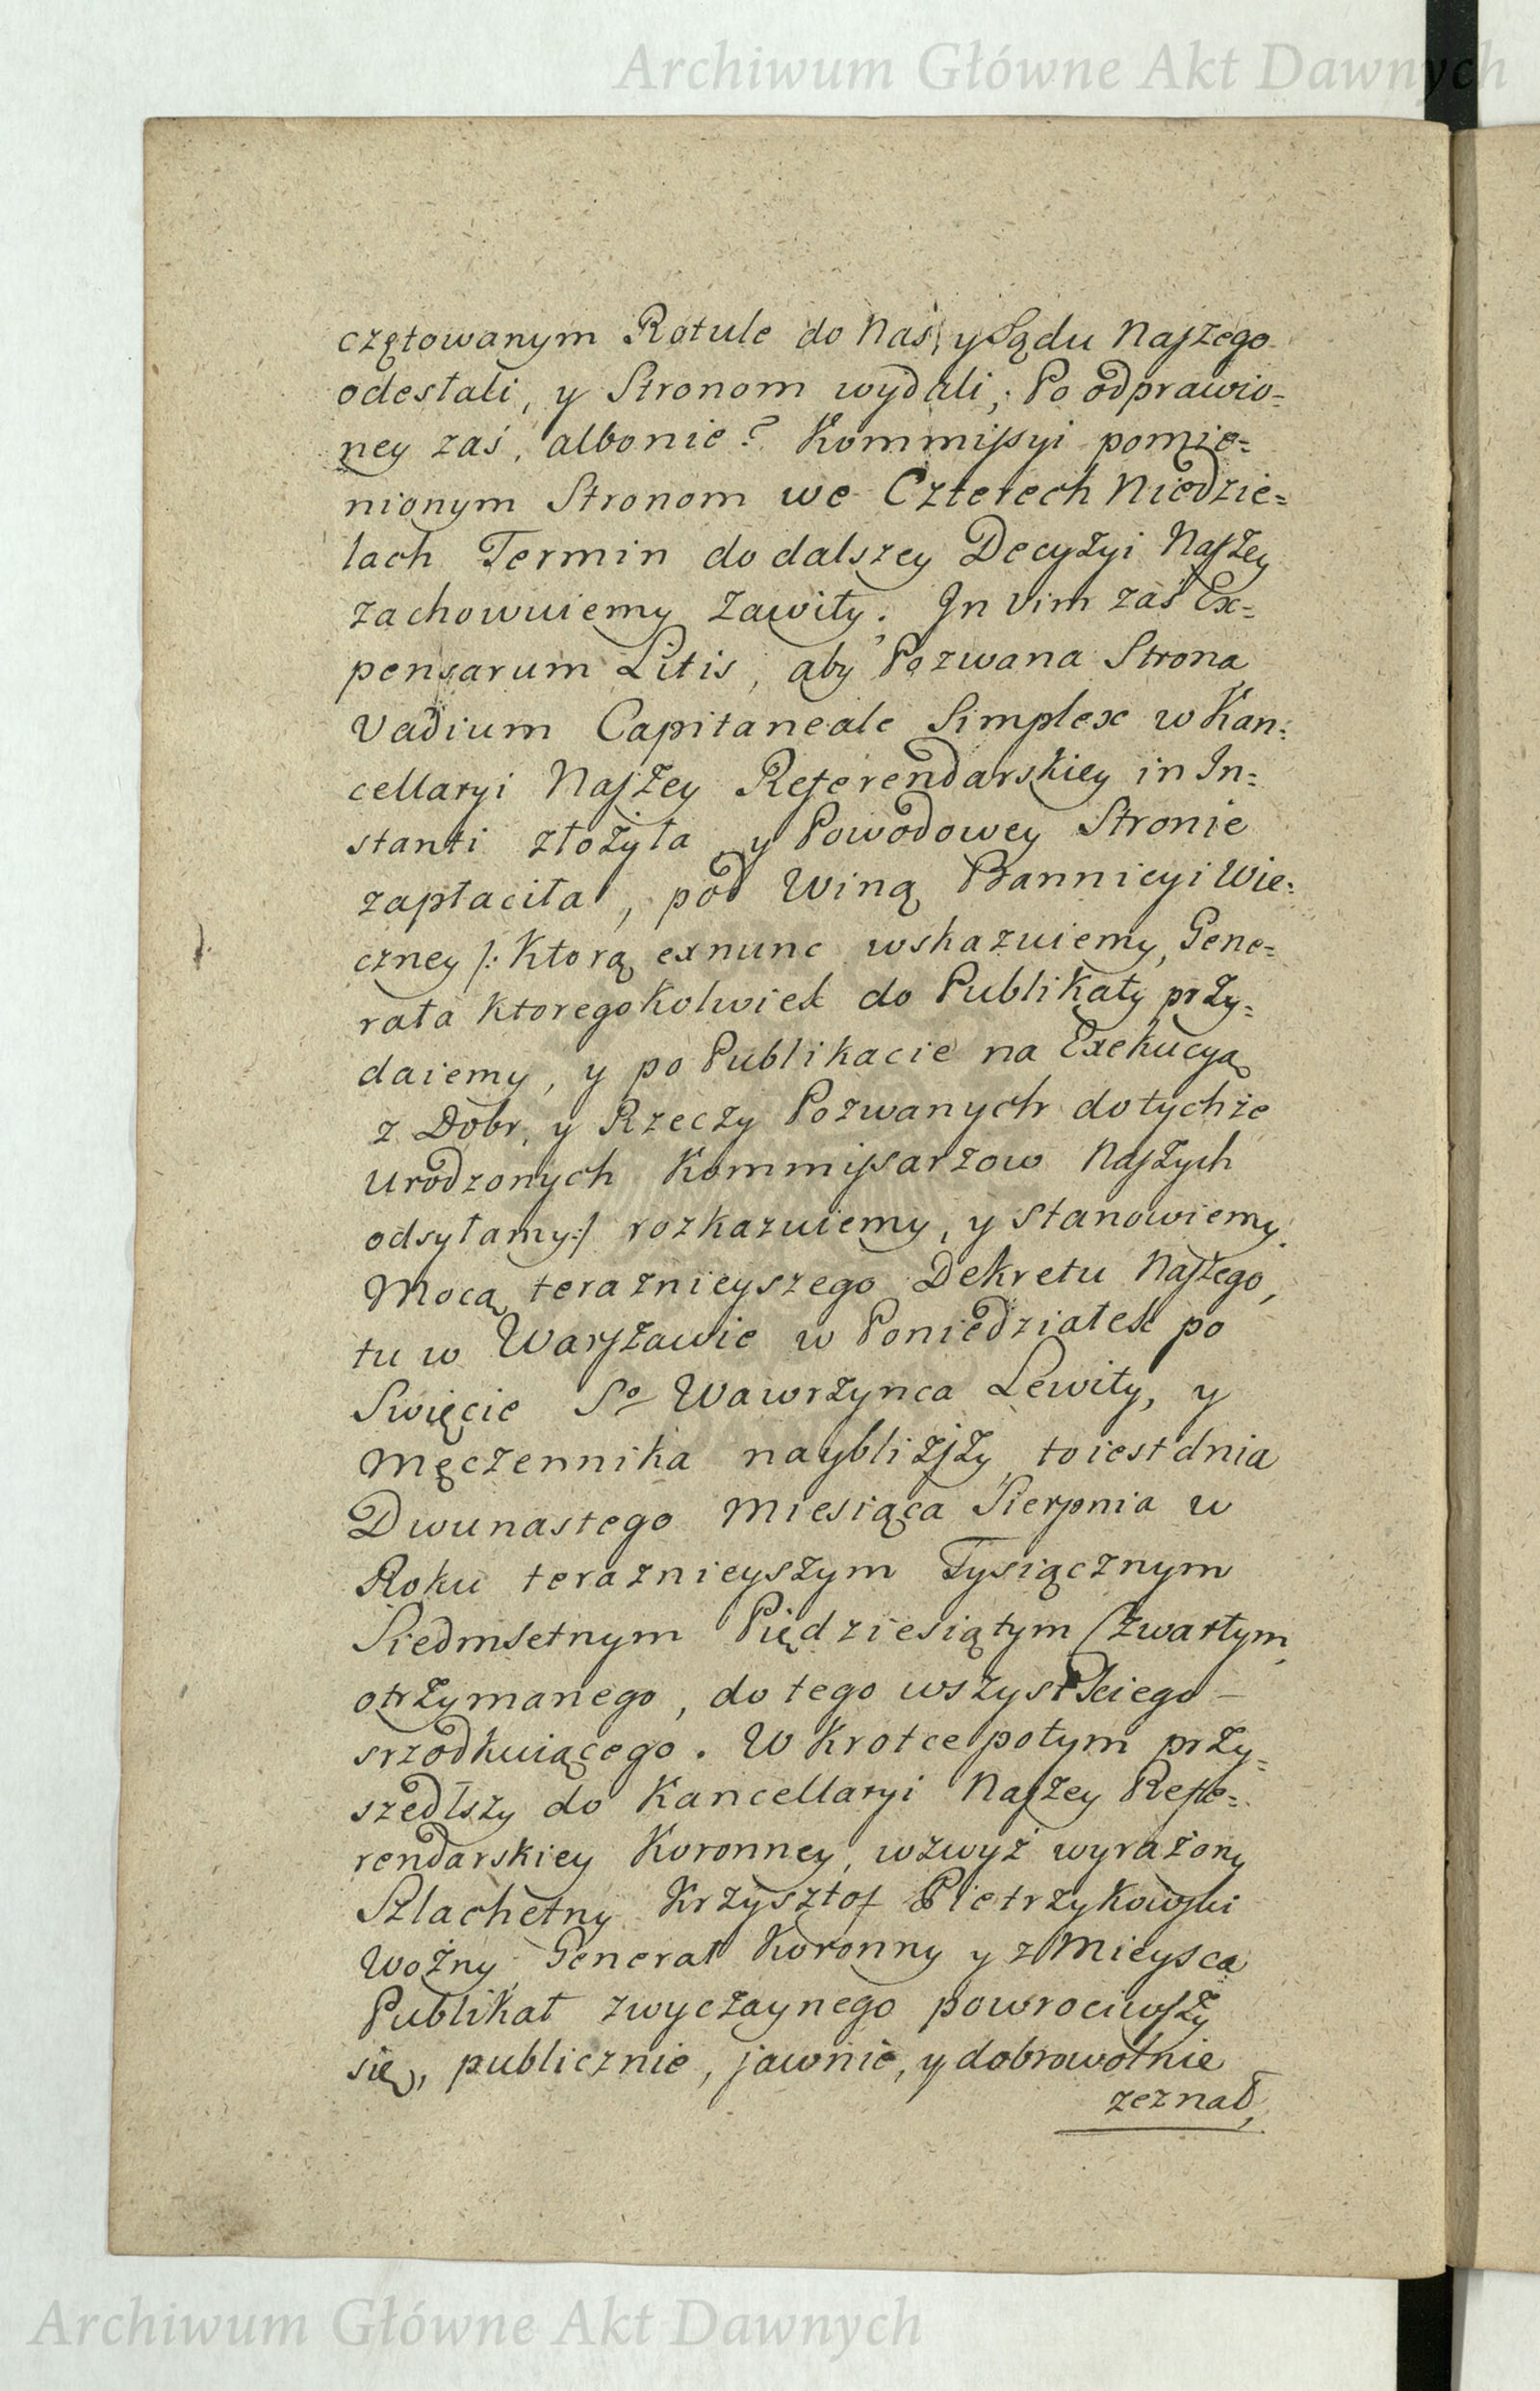 Archiwum Główne Akt Dawnych
czętowanym Rotule do Nas, y Sądu Naszego
odesłali, y Stronom wydali; Po odprawio=
ney zaś, albonie? Kommissyi pomie=
nionym Stronom we Czterech Niedzie=
lach Termin do dalszey Decyzyi Naszey
zachowuiemy zawity. In vim zaś Ex=
pensarum Litis, aby Pozwana Strona
Vadium Capitaneale Simplex w Kan=
cellaryi Naszey Referendarskiey in In=
stanti złożyła y Powodowey Stronie
zapłaciła, pod Winą Bannicyi Wie=
czney /: Ktorą exnunc wskazuiemy, Gene=
rała Ktoregokolwiek do Publikaty przy=
daiemy, y po Publikacie na Exekucyą
z Dobr, y Rzeczy Pozwanych do tychże
Urodzonych Kommissarzow Naszych
odsyłamy :/ rozkazuiemy, y stanowiemy.
Mocą teraznieyszego Dekretu Naszego,
tu w Warszawie w Poniedziałek po
Swięcie So Wawrzynca Lewity, y
Męczennika naybliższy to iest dnia
Dwunastego Miesiąca Sierpnia w
Roku teraznieyszym Tysiącznym
Siedmsetnym Piędziesiątym Czwartym,
otrzymanego, do tego wszystkiego –
srzodkuiącego. W Krotce potym przy=
szedłszy do Kancellaryi Naszey Refe=
rendarskiey Koronney, wzwyż wyrażony
Szlachetny Krzysztof Pietrzykowski
Woźny Generał Koronny y z Mieysca
Publikat zwyczaynego powrociwszy
się, publicznie, jawnie, y dobrowolnie
zeznał,
Archiwum Główne Akt Dawnych